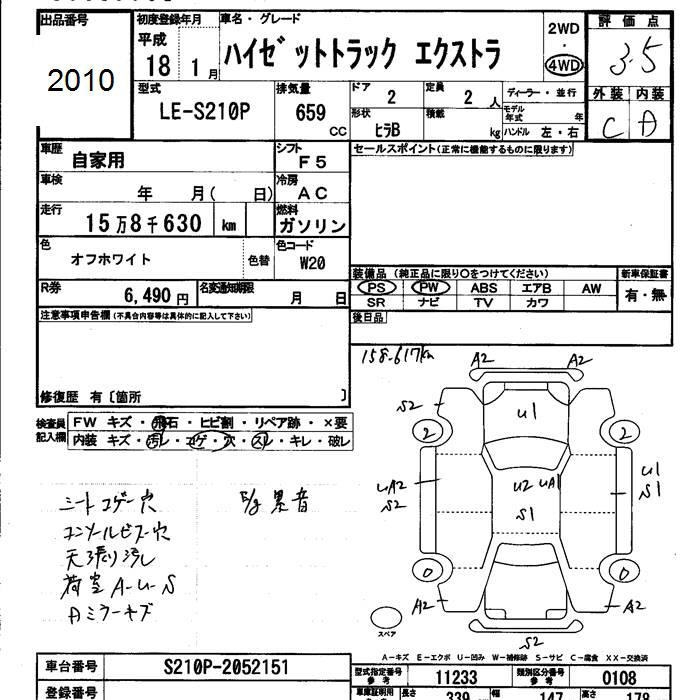 出品番号
2010
初度登録年月
平成
18 1 月
車名・グレード
ハイゼットトラック エクストラ
2WD
・
4WD
評価点
3.5
外装 内装
C A
型式
LE-S210P
排気量
659
CC
ドア
2
定員
2 人
形状
ヒラB
積載
kg
ディーラー・並行
モデル年式 年
ハンドル 左・右
車歴
自家用
シフト
F5
セールスポイント(正常に機能するものに限ります)
車検
年 月( 日)
冷房
AC
走行
15万8千630 km
燃料
ガソリン
色
オフホワイト
色替
色コード
W20
R券
6,490円
名変通知期限
月 日
装備品 (純正品に限り○をつけてください)
PS PW ABS エアB AW
SR ナビ TV カワ
新車保証書
有・無
後日品
注意事項申告欄(不具合内容等は具体的に記入して下さい)
修復歴 有〔箇所 〕
検査員記入欄
FW キズ・飛石・ヒビ割・リペア跡・×要
内装 キズ・汚レ・コゲ・穴・スレ・キレ・破レ
158.617km
A2 A2
S2
U1
2 2
UA2
S2
U2 UA1
S1
U1
S1
0 0
A2 A2
S2
スペア
シートコゲー穴
コンソールビスー穴
天張り汚レ
荷室 A-U-S
Aミラーキズ
E/g 異音
A-キズ E-エクボ U-凹み W-補修跡 S-サビ C-腐食 XX-交換済
車台番号
S210P-2052151
型式指定番号
参考
11233
類別区分番号
参考
0108
登録番号
車庫証明用
長さ
339
幅
147
高さ
178